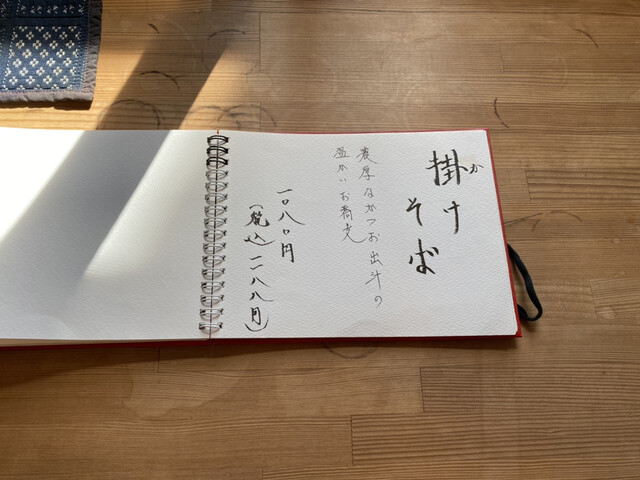 掛けそば
か
濃厚なかつお出汁の
温かいお蕎麦
一〇八〇円
(税込一一八八円)